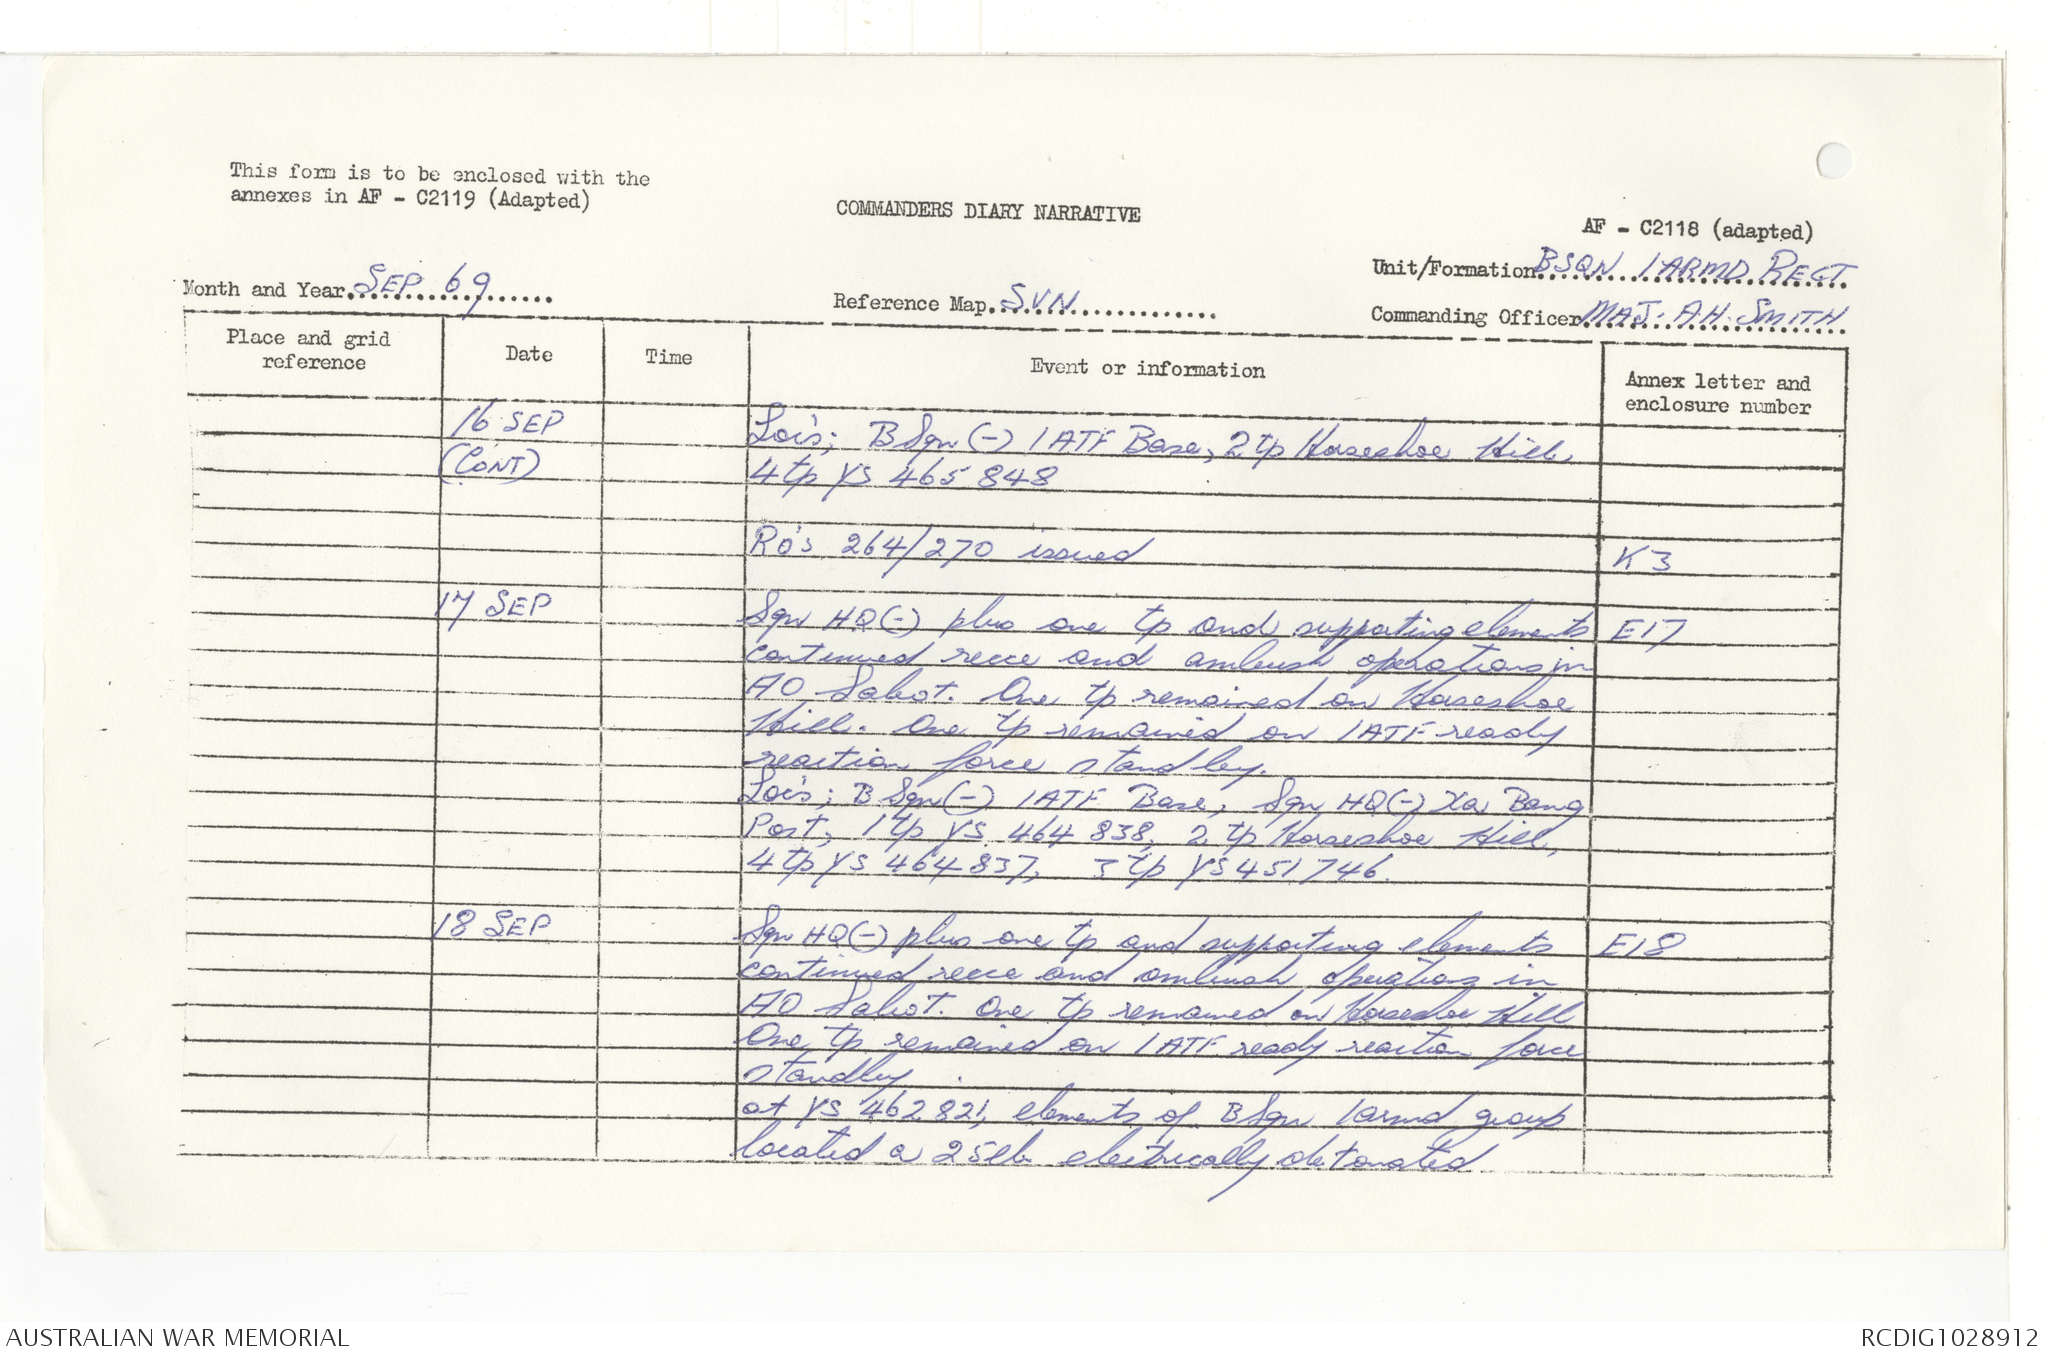 This form is to be enclosed with the
annexes in AF - C2119 (Adapted)
COMMANDERS DIARY NARRATIVE
AF - C2118 (adapted)
Unit/Formation BSQN 1 ARMD REGT
Month and Year SEP 69
Reference Map SVN
Commanding Officer MAJ. A.H. SMITH
Place and grid reference
Date
Time
Event or information
Annex letter and enclosure number
16 SEP
(CONT)
Loc's; B Sqn (-) 1 ATF Base, 2 tp Horseshoe Hill,
4 tp YS 465 848
Ro's 264/270 issued K3
17 SEP Sqn HQ (-) plus one tp and supporting elements E17
continued recce and ambush operations in
AO Sabot. One tp remained on Horseshoe
Hill. One tp remained on 1 ATF ready
reaction force standby.
Loc's; B Sqn (-) 1 ATF Base, Sqn HQ (-) Xa Bang
Post, 1 tp YS 464 838, 2 tp Horseshoe Hill,
4 tp YS 464 837, 3 tp YS 451 746.
18 SEP Sqn HQ (-) plus one tp and supporting elements E18
continued recce and ambush operations in
AO Sabot. One tp remained on Horseshoe Hill
One tp remained on 1 ATF ready reaction force
standby.
at YS 462 821, elements of B Sqn 1 armd group
located a 25lb electrically detonated
AUSTRALIAN WAR MEMORIAL
RCDIG1028912